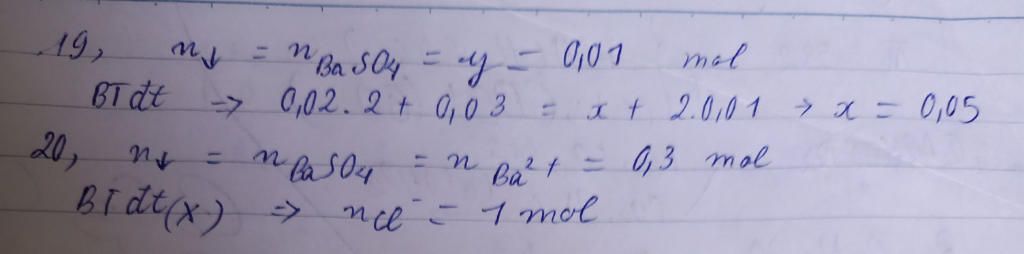 19, n↓ = nBaSO4 = y = 0,01 mol
BTđt => 0,02.2 + 0,03 = x + 2.0,01 → x = 0,05
20, n↓ = nBaSO4 = nBa2+ = 0,3 mol
BTđt(X) => nCl- = 1 mol